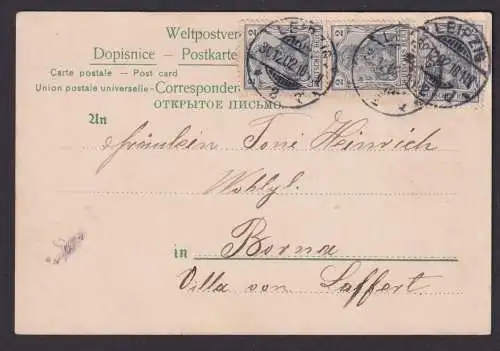 Weltpostver
Dopisnice — Postkarte
Carte postale — Post card
Union postale universelle - Corresponden
ОТКРЫТОЕ ПИСЬМО.
2
2
LEIPZIG
30.12.02.10
2
LEIPZIG
An
Fräulein Toni Heinrich
Wohlgl.
in Borna
Villa von Laffert.